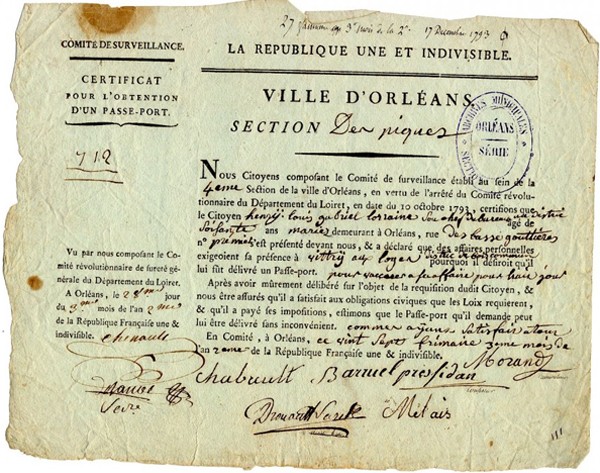 27 frimaire ou 3e mois de la 2e 17 Decembre 1793
COMITÉ DE SURVEILLANCE.
LA REPUBLIQUE UNE ET INDIVISIBLE.
CERTIFICAT
POUR L'OBTENTION
D'UN PASSE-PORT.
712
VILLE D'ORLÉANS
SECTION Des piques
ARCHIVES MUNICIPALES
ORLÉANS
SÉRIE
NOUS Citoyens composant le Comité de surveillance établi au sein de la
4eme Section de la ville d'Orléans, en vertu de l'arrêté du Comité révolu-
tionnaire du Département du Loiret, en date du 10 octobre 1793, certifions que
le Citoyen henry louis gabriel lorraine chef de bureau au district
agé de
soisante ans marié demeurant à Orléans, rue des basse gouttieres
n° premier s'est présenté devant nous, & a déclaré que des affaires personnelles
exigeoient sa présence à vittry aux loges district de
pourquoi il désiroit qu'il
lui fût délivré un Passe-port. pour vacquer a sus affaire pour huit jour
Après avoir mûrement délibéré sur l'objet de la requisition dudit Citoyen, &
nous être assurés qu'il a satisfait aux obligations civiques que les Loix requierent,
& qu'il a payé ses impositions, estimons que le Passe-port qu'il demande peut
lui être délivré sans inconvénient. comme ayant satisfait a tout
En Comité, à Orléans, ce vint sept frimaire 3eme mois de
l'an 2eme de la République Française une & indivisible.
Vu par nous composant le Co-
mité révolutionnaire de sureté géné-
rale du Département du Loiret.
A Orléans, le 28me jour
du 3eme mois de l'an 2me
de la République Française une &
indivisible.
Chenault
Secre
Chabault Barruel presidan Morand
Drouard Metais
111